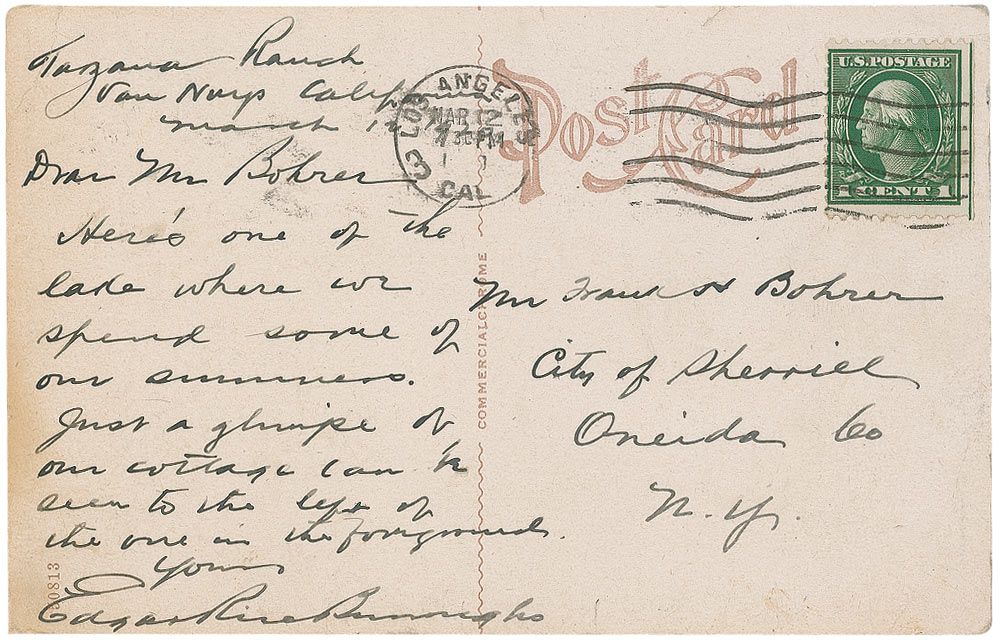 Tarzana Ranch
Van Nuys Calif
March 1
Dear Mr Bohrer
Here's one of the
lake where we
spend some of
our summers.
Just a glimpse of
our cottage can be
seen to the left of
the one in the foreground.
Yours
Edgar Rice Burroughs
Post Card
LOS ANGELES
MAR 12
30 PM
CAL
3
U.S. POSTAGE
1 CENT 1
Mr Frank H Bohrer
City of Sherrill
Oneida Co
N.Y.
COMMERCIALCHROME
30813